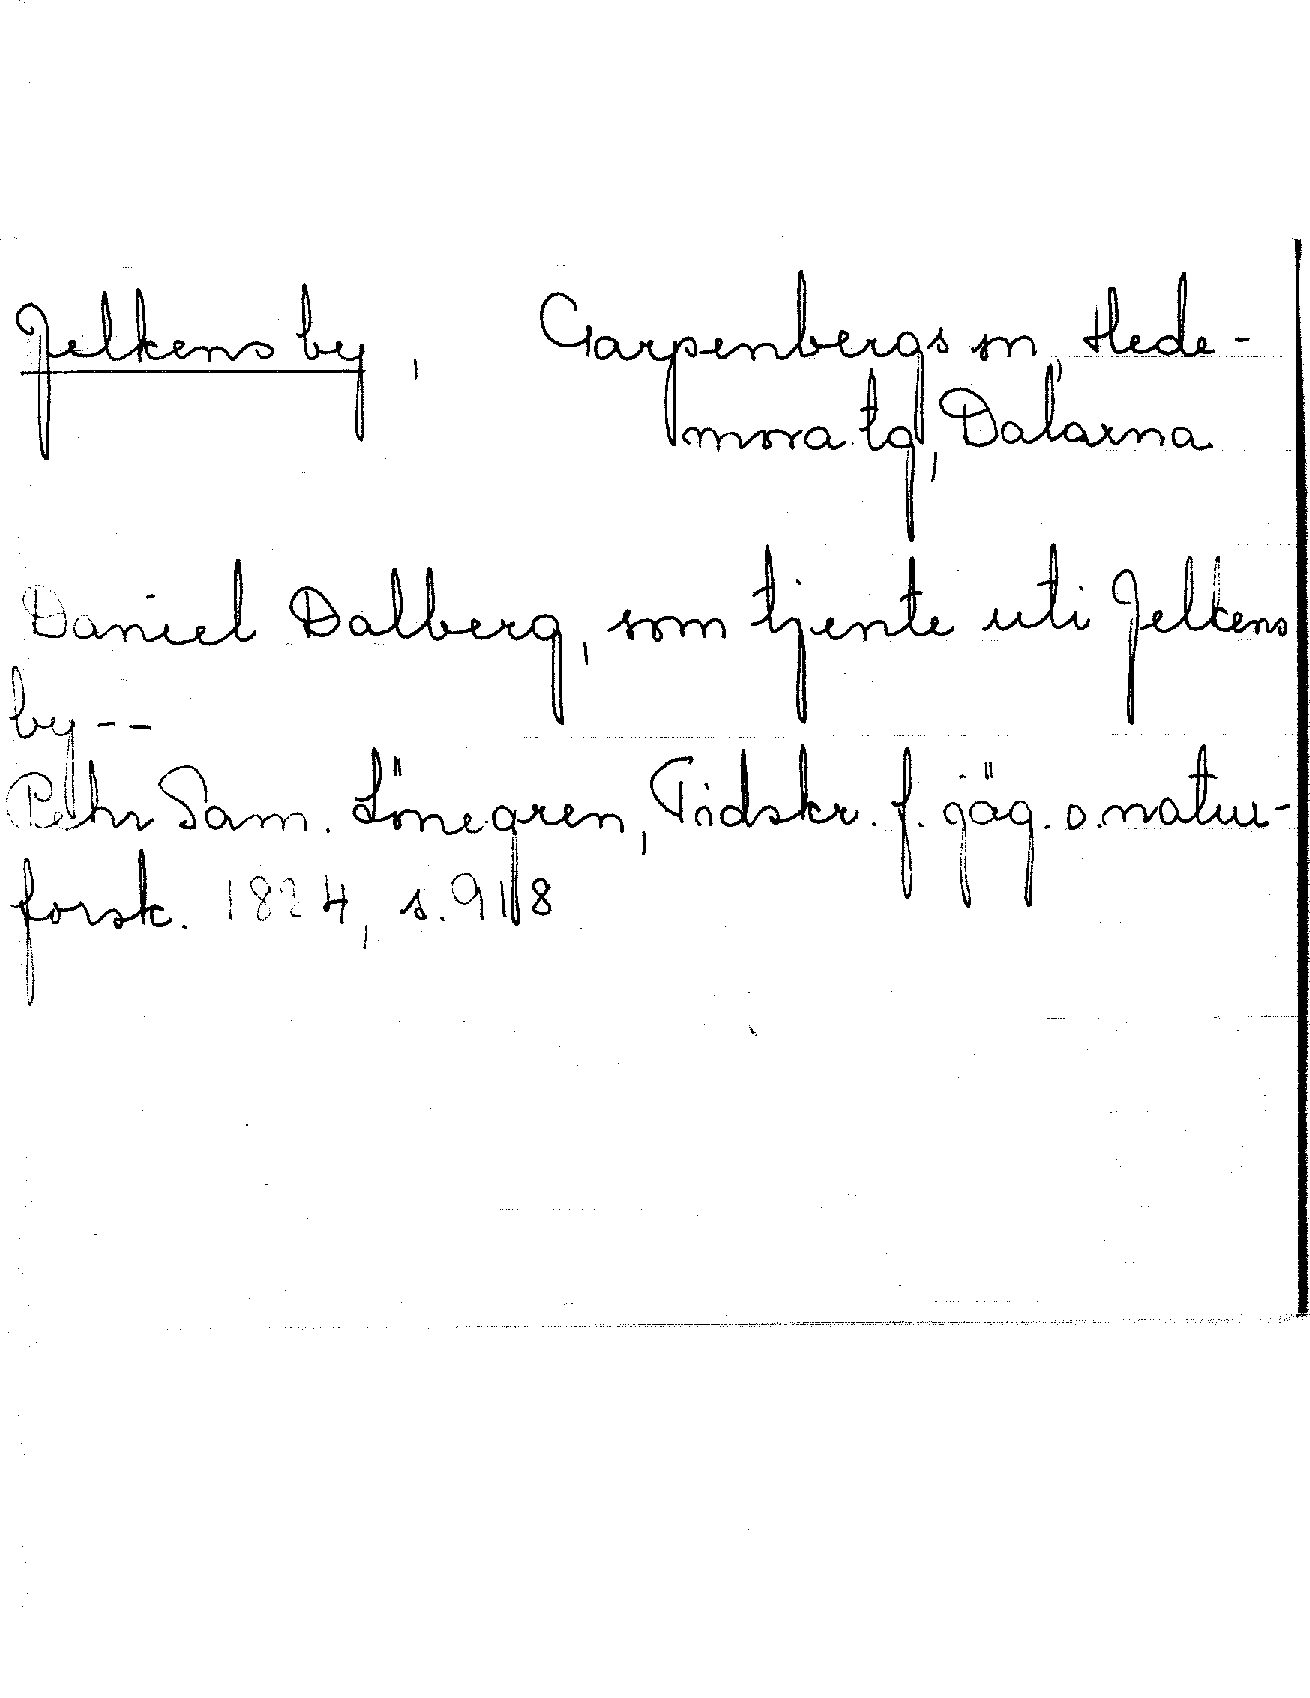 Jelkens by, Garpenbergs sn, Hede-
mora tg, Dalarna
Daniel Dalberg, som tjente uti Jelkens
by--
Pehr Sam. Lönegren, Tidskr. f. jäg. o. natur-
forsk. 1824, s. 918